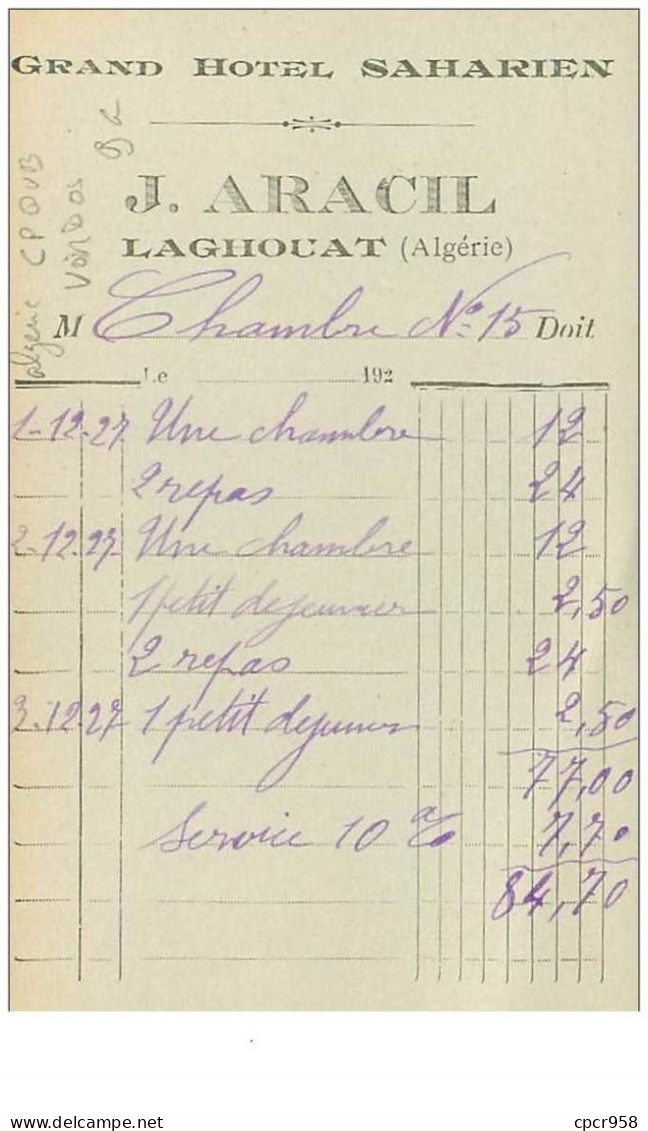 GRAND HOTEL SAHARIEN
J. ARACIL
LAGHOUAT (Algérie)
M Chambre No 15 Doit
Le 192
1-12-27 Une chambre 12
2 repas 24
2-12-27 Une chambre 12
1 petit dejeuner 2,50
2 repas 24
3-12-27 1 petit dejeuner 2,50
77,00
Service 10 % 7,70
84,70
algerie CPOUB
cpcr958